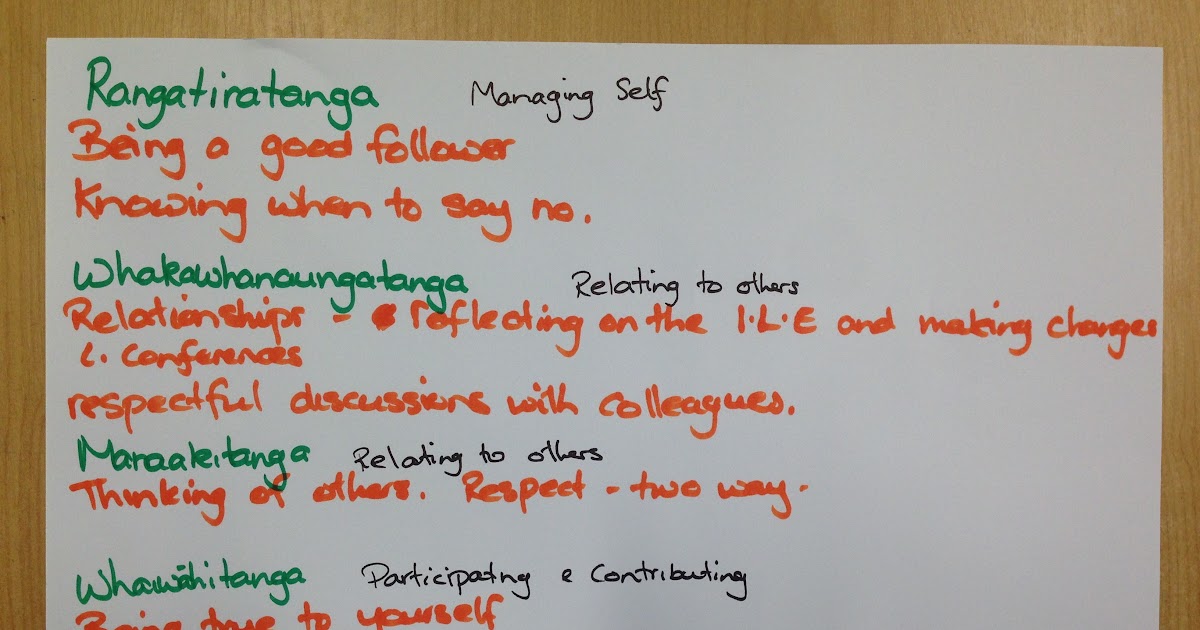 Rangatiratanga Managing Self
Being a good follower
Knowing when to say no.
Whakawhanaungatanga Relating to others
Relationships - reflecting on the I.L.E and making changes
L. Conferences
respectful discussions with colleagues.
Manaakitanga Relating to others
Thinking of others. Respect - two way.
Whaiwāhitanga Participating & Contributing
Being true to yourself